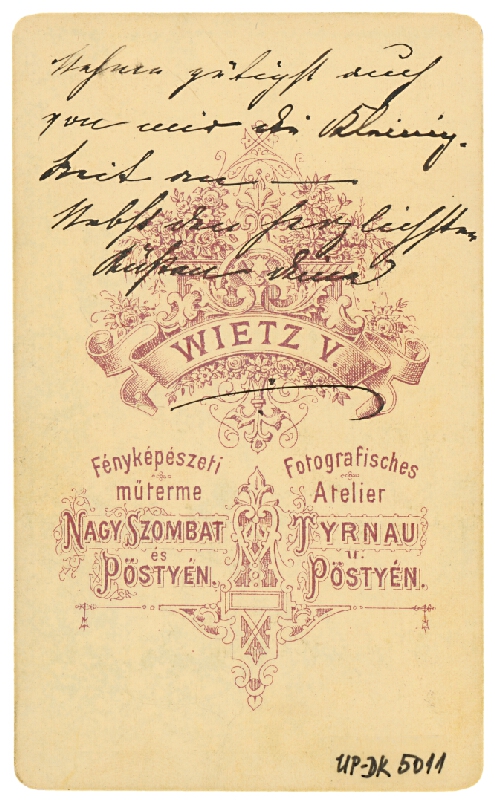 Nehmen gütigst auch
von mir die Kleinig-
keit an —
Nebst den herzlichsten
Küssen
WIETZ V
Fényképészeti
műterme
NAGY SZOMBAT
és
PÖSTYÉN.
Fotografisches
Atelier
TYRNAU
u.
PÖSTYÉN.
UP-DK 5011